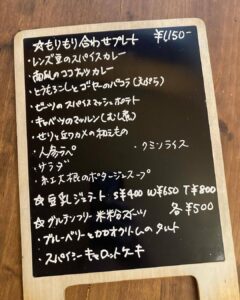 ☆もりもり合わせプレート ¥1,150-
・レンズ豆のスパイスカレー
・南瓜のココナツカレー
・とうもろこしとゴーヤのパコラ(天ぷら)
・ビーツのスパイスマッシュポテト
・キャベツのマルン(むし煮)
・せりと生ワカメの和えもの
・人参ラペ ・クミンライス
・サラダ
・紅大根のポタージュスープ
☆豆乳ジェラート S¥400 W¥650 T¥800
☆グルテンフリー米粉スイーツ 各¥500
・ブルーベリーとカカオクリームのタルト
・スパイシーキャロットケーキ